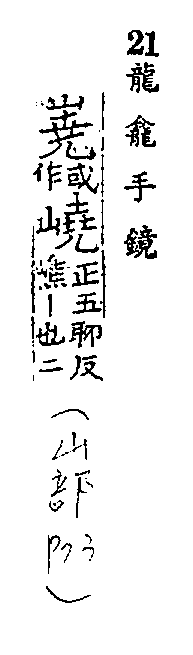 21龍龕手鏡
嶤或作嶢正五聊反嶕—也二
(山部 P73)